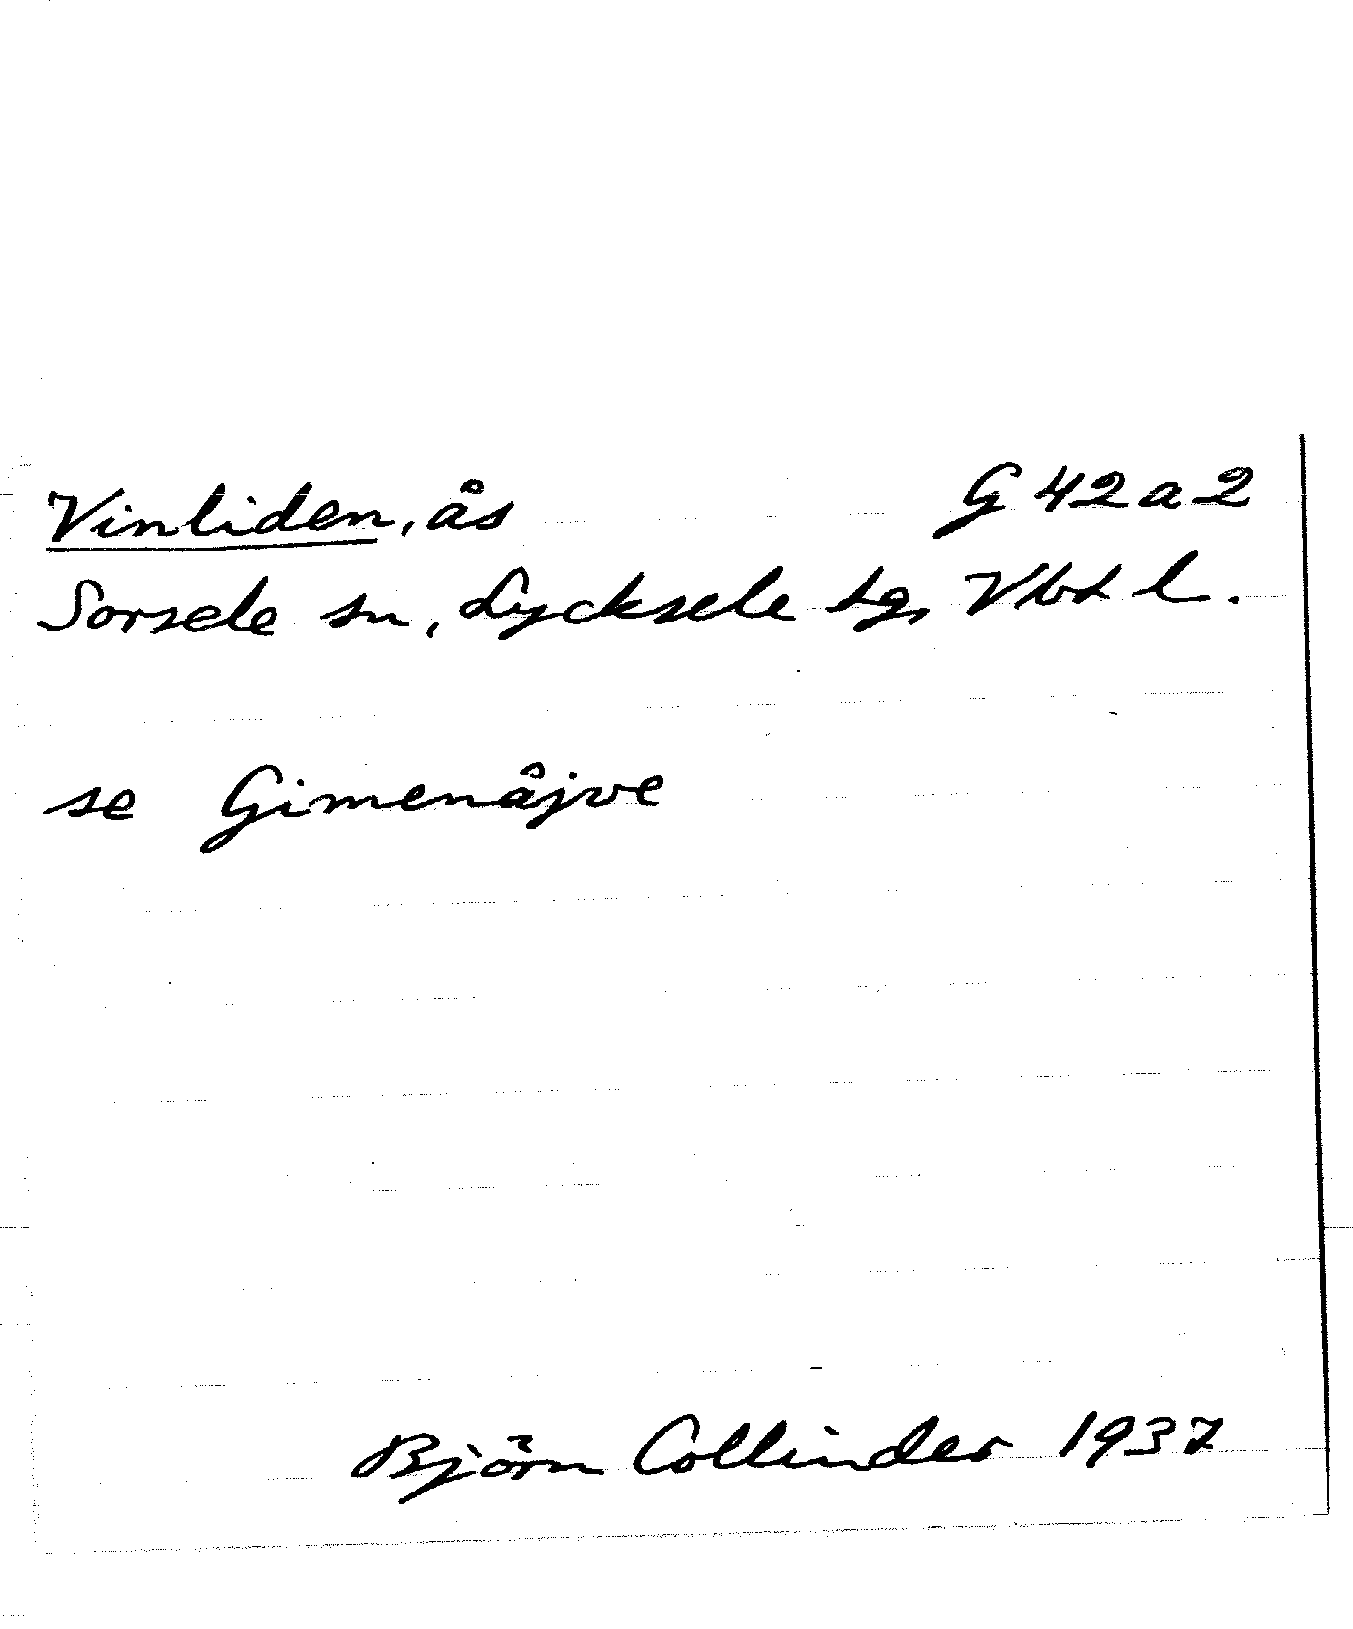 Vinliden, ås G 42 a 2
Sorsele sn, Lycksele tg, Vbt l.
se Gimenåjve
Björn Collinder 1937